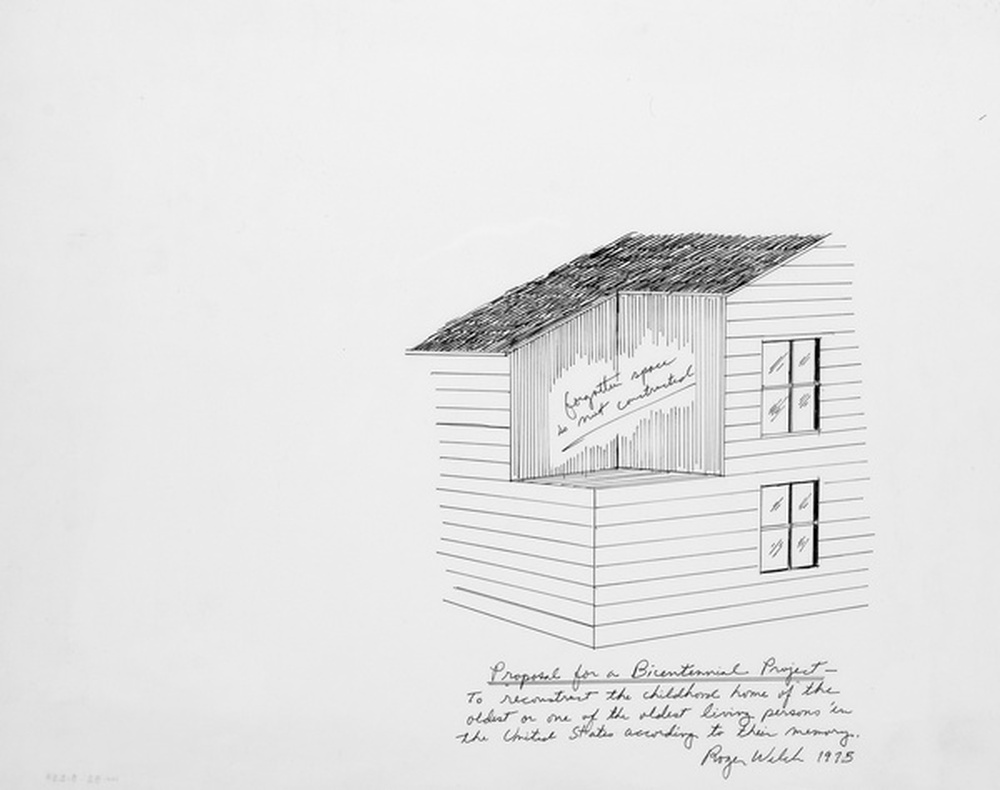 forgotten space
is not constructed
Proposal for a Bicentennial Project—
To reconstruct the childhood home of the
oldest or one of the oldest living persons in
the United States according to their memory.
Roger Welch 1975